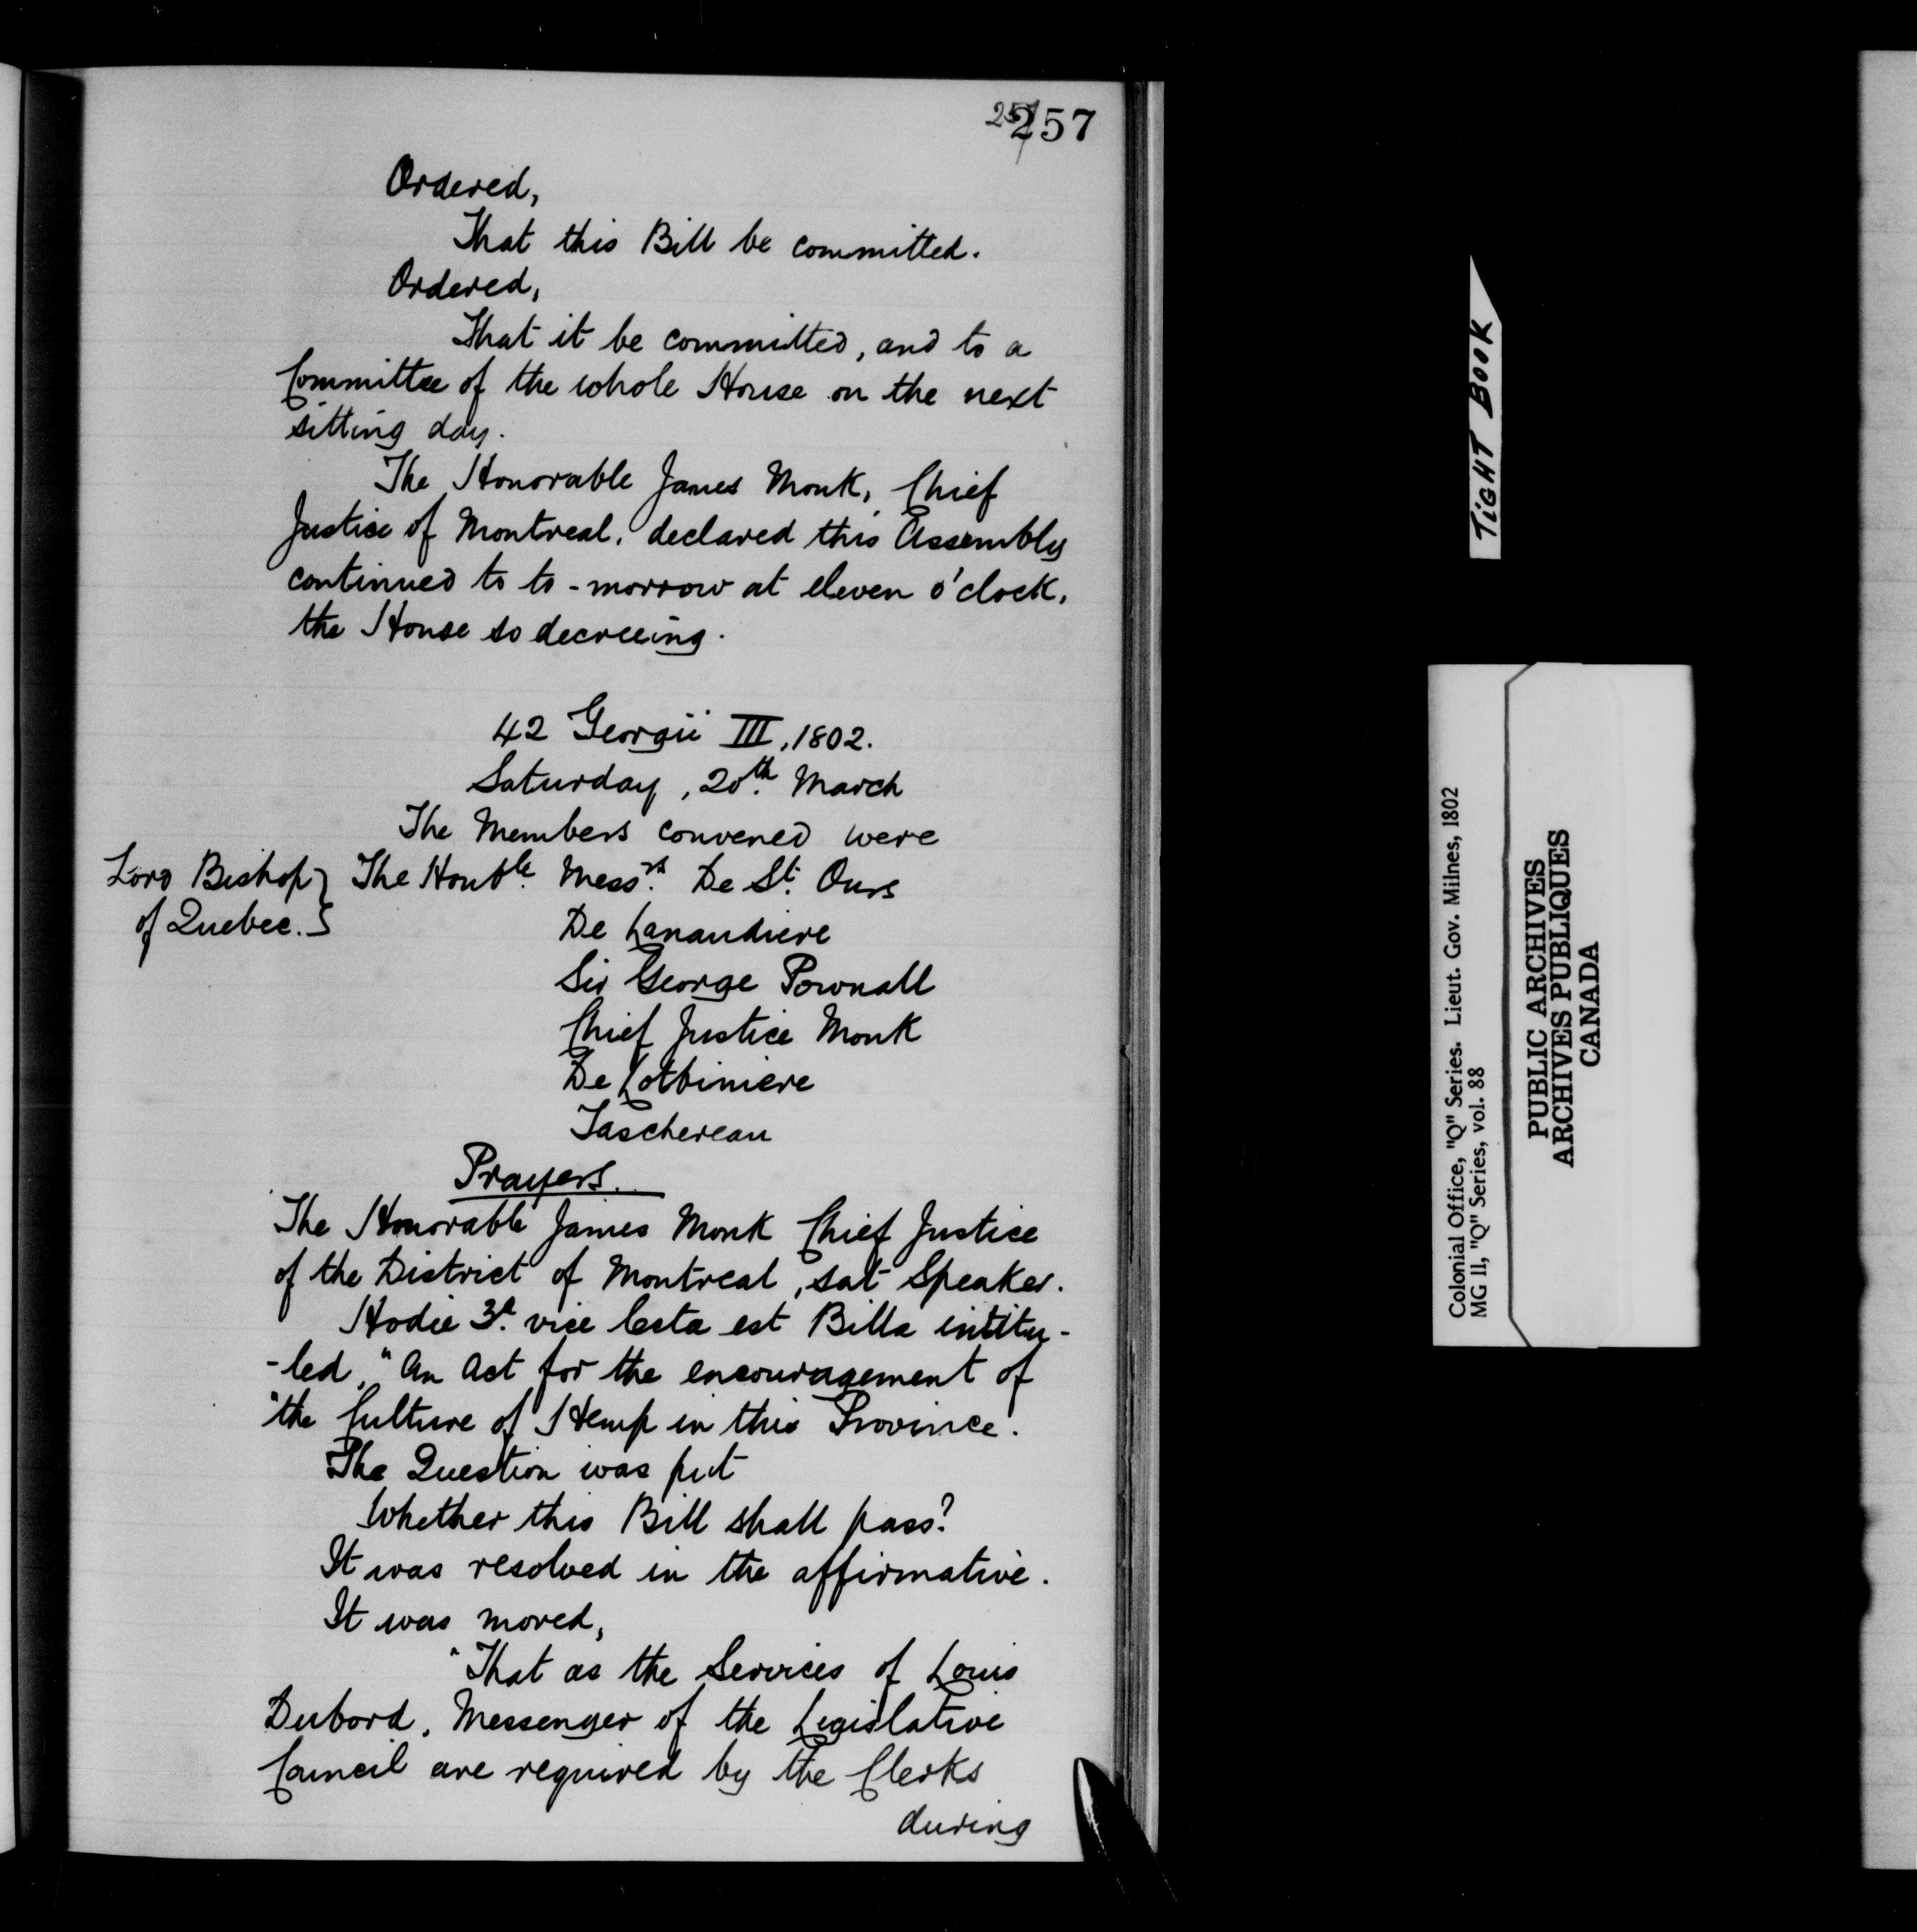 257
257
Ordered,
That this Bill be committed.
Ordered,
That it be committed, and to a
Committee of the whole House on the next
sitting day.
The Honorable James Monk, Chief
Justice of Montreal, declared this Assembly
continued to to-morrow at eleven o'clock,
the House so decreeing.
42 Georgii III, 1802.
Saturday, 20th. March
The Members convened were
Lord Bishop } The Honble. Messrs. De St. Ours
of Quebec. }
De Lanaudiere
Sir George Pownall
Chief Justice Monk
De Lotbiniere
Taschereau
Prayers.
The Honorable James Monk Chief Justice
of the District of Montreal, sat Speaker.
Hodie 3a. vice lecta est Billa intitu-
-led, "An Act for the encouragement of
"the Culture of Hemp in this Province.
The Question was put
Whether this Bill shall pass?
It was resolved in the affirmative.
It was moved,
"That as the Services of Louis
Dubord, Messenger of the Legislative
Council are required by the Clerks
during
TIGHT BOOK
Colonial Office, "Q" Series. Lieut. Gov. Milnes, 1802
MG 11, "Q" Series, vol. 88
PUBLIC ARCHIVES
ARCHIVES PUBLIQUES
CANADA